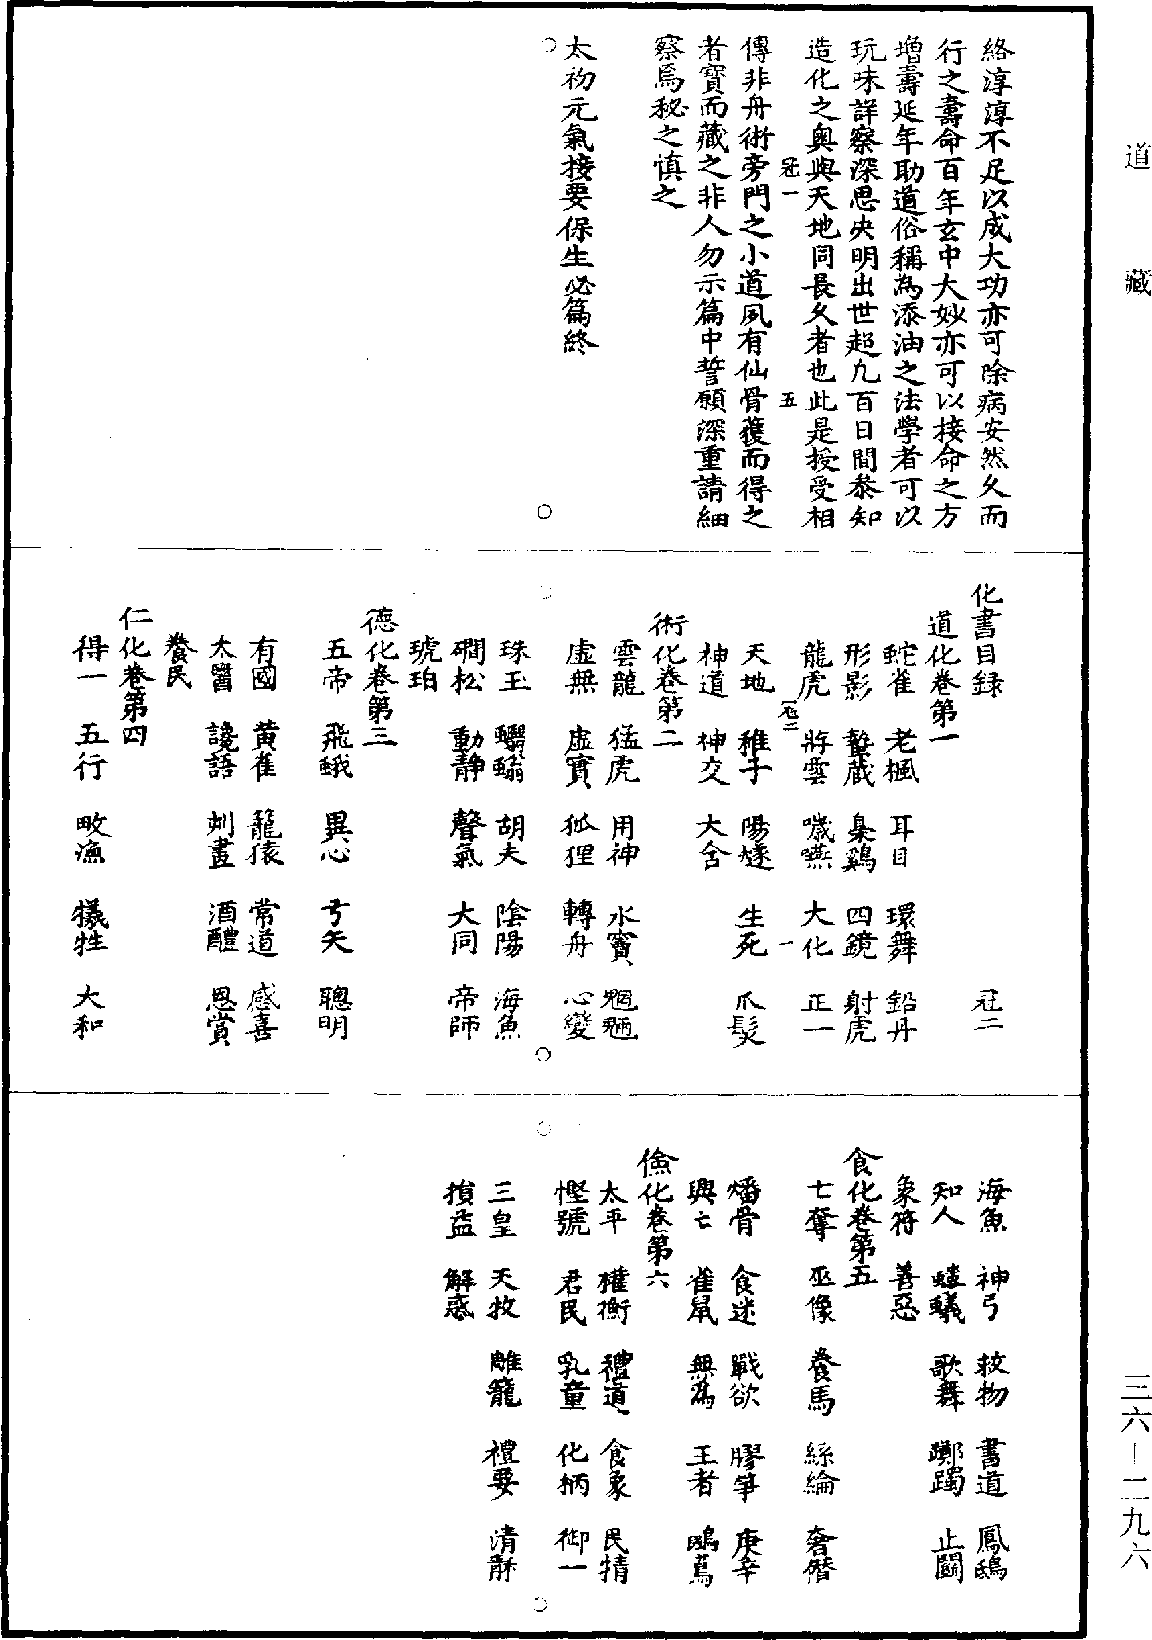 道藏
三六—二九六
絡淳淳不足以成大功亦可除病安然久而
行之壽命百年玄中大妙亦可以接命之方
增壽延年助道俗稱為添油之法學者可以
玩味詳察深思央明出世超九百日間叅知
造化之奧與天地同長久者也此是授受相
冠一 五
傳非舟術旁門之小道夙有仙骨獲而得之
者寶而藏之非人勿示篇中誓願深重請細
察焉秘之慎之
太初元氣接要保生必篇終
化書目録 冠二
道化卷第一
蛇雀 老楓 耳目 環舞 鉛丹
形影 蟄藏 梟鷄 四鏡 射虎
龍虎 將雲 噦嚥 大化 正一
冠二 一
天地 稚子 陽燧 生死 爪髮
神道 神交 大含
術化卷第二
雲龍 猛虎 用神 水竇 魍魎
虛無 虛實 狐狸 轉舟 心變
珠玉 蠮螉 胡夫 陰陽 海魚
磵松 動靜 聲氣 大同 帝師
琥珀
德化卷第三
五帝 飛蛾 異心 弓矢 聰明
有國 黃雀 籠猿 常道 感喜
太醫 讒語 刻畫 酒醴 恩賞
養民
仁化卷第四
得一 五行 畋漁 犧牲 大和
海魚 神弓 救物 書道 鳳鴟
知人 螻蟻 歌舞 躑躅 止鬬
象符 善惡
食化卷第五
七奪 巫像 養馬 絲綸 奢僭
燔骨 食迷 戰欲 膠竿 庚辛
興亡 雀鼠 無為 王者 鴟鳶
儉化卷第六
太平 權衡 禮道 食象 民情
慳號 君民 乳童 化柄 御一
三皇 天牧 雕籠 禮要 清靜
損益 解惑